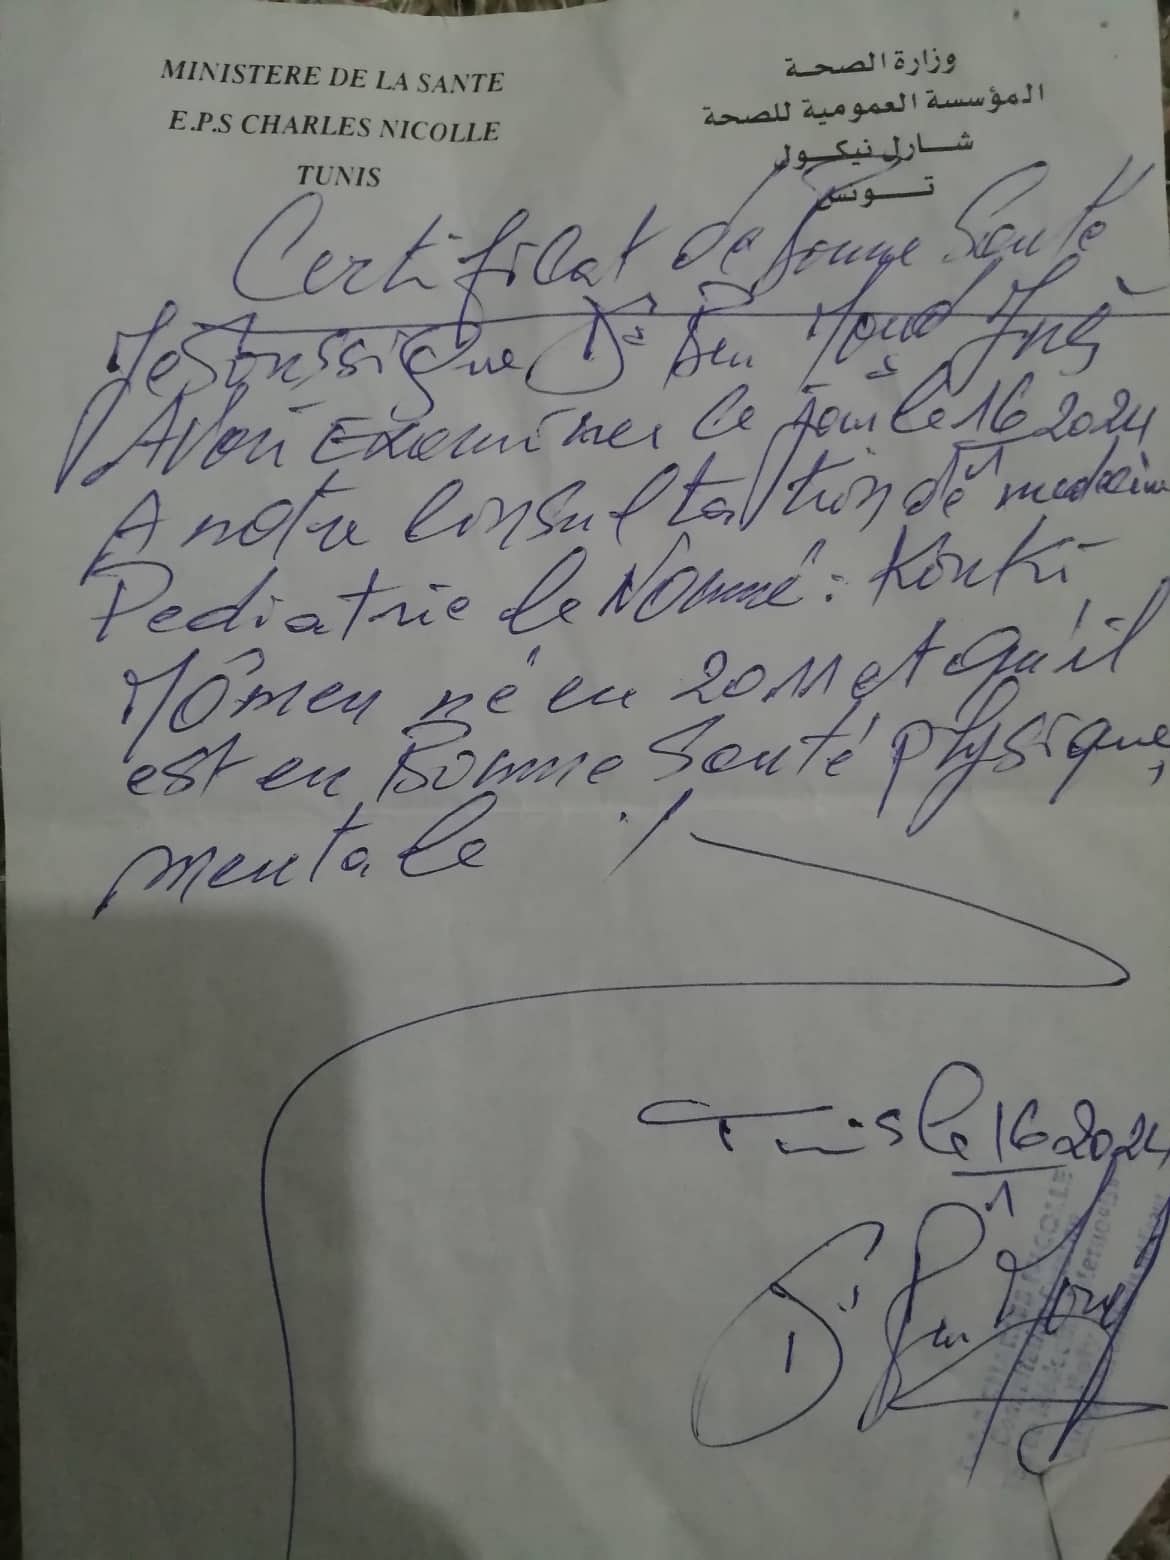 MINISTERE DE LA SANTE
E.P.S CHARLES NICOLLE
TUNIS
وزارة الصحة
المؤسسة العمومية للصحة
شارل نيكول
تونس
Certificat de Bonne Santé
Je Soussigné Dr Ben
Avoir Examiner Ce jour le 16 2024
1
A notre Consultation de medecine
Pediatrie le Nommé : Kontri
Mômen né en 2011 et qu'il
est en Bonne Santé physique,
mentale ./
Tunis le 16 2024
1
Dr Ben